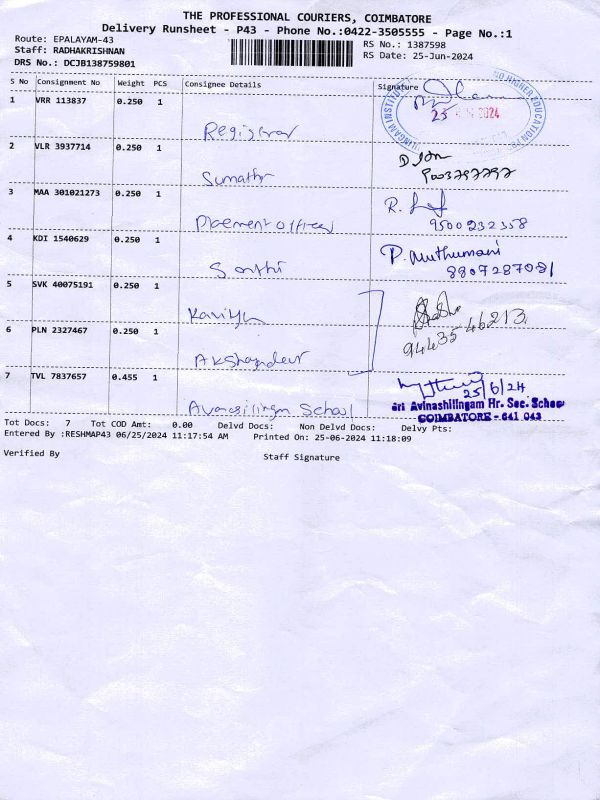 THE PROFESSIONAL COURIERS, COIMBATORE
Delivery Runsheet - P43 - Phone No.:0422-3505555 - Page No.:1
Route: EPALAYAM-43
RS No.: 1387598
Staff: RADHAKRISHNAN
RS Date: 25-Jun-2024
DRS No.: DCJB138759801
S No Consignment No Weight PCS Consignee Details Signature
1 VRR 113837 0.250 1 Registrar
25 2024
2 VLR 3937714 0.250 1 Sumathi
9003797797
3 MAA 301021273 0.250 1 Placement officer R.
9500232358
4 KDI 1540629 0.250 1 Santhi P. Muthumani
8807287081
5 SVK 40075191 0.250 1 Kaviya
6 PLN 2327467 0.250 1 9443546213
7 TVL 7837657 0.455 1 Avanasilingm School
25/6/24
Sri Avinashilingam Hr. Sec. School
COIMBATORE - 641 043
Tot Docs: 7 Tot COD Amt: 0.00 Delvd Docs: Non Delvd Docs: Delvy Pts:
Entered By :RESHMAP43 06/25/2024 11:17:54 AM Printed On: 25-06-2024 11:18:09
Verified By Staff Signature